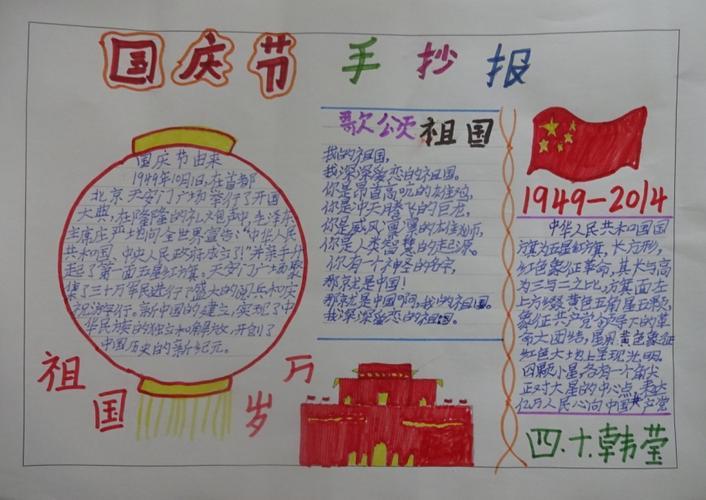 国庆节 手抄报
国庆节由来
1949年10月1日,在首都
北京天安门广场举行了开国
大典,在隆隆的礼炮声中,毛泽东
主席庄严地向全世界宣告:“中华人民
共和国、中央人民政府成立了!”并亲手升
起了第一面五星红旗。天安门广场聚
集了三十万军民进行了盛大的阅兵和庆
祝游行。新中国的建立,实现了中
华民族的独立和解放,开创了
中国历史的新纪元。
祖国万岁
歌颂祖国
我的祖国,
我深深爱恋的祖国。
你是昂首高吭的雄鸡,
你是冲天腾飞的巨龙,
你是威风凛凛的雄狮,
你是人类智慧的起源。
你有一个神圣的名字,
那就是中国!
那就是中国啊,我的祖国。
我深深爱恋的祖国。
1949-2014
中华人民共和国国
旗为五星红旗,长方形,
红色象征革命,其长与高
为三与二之比,旗面左
上方缀黄色五角星五颗,
象征共产党领导下的革
命大团结,星用黄色象征
红色大地上呈现光明
四颗小星各有一个角尖
正对大星的中心点,表达
亿万人民心向中国共产党
四.十.韩莹